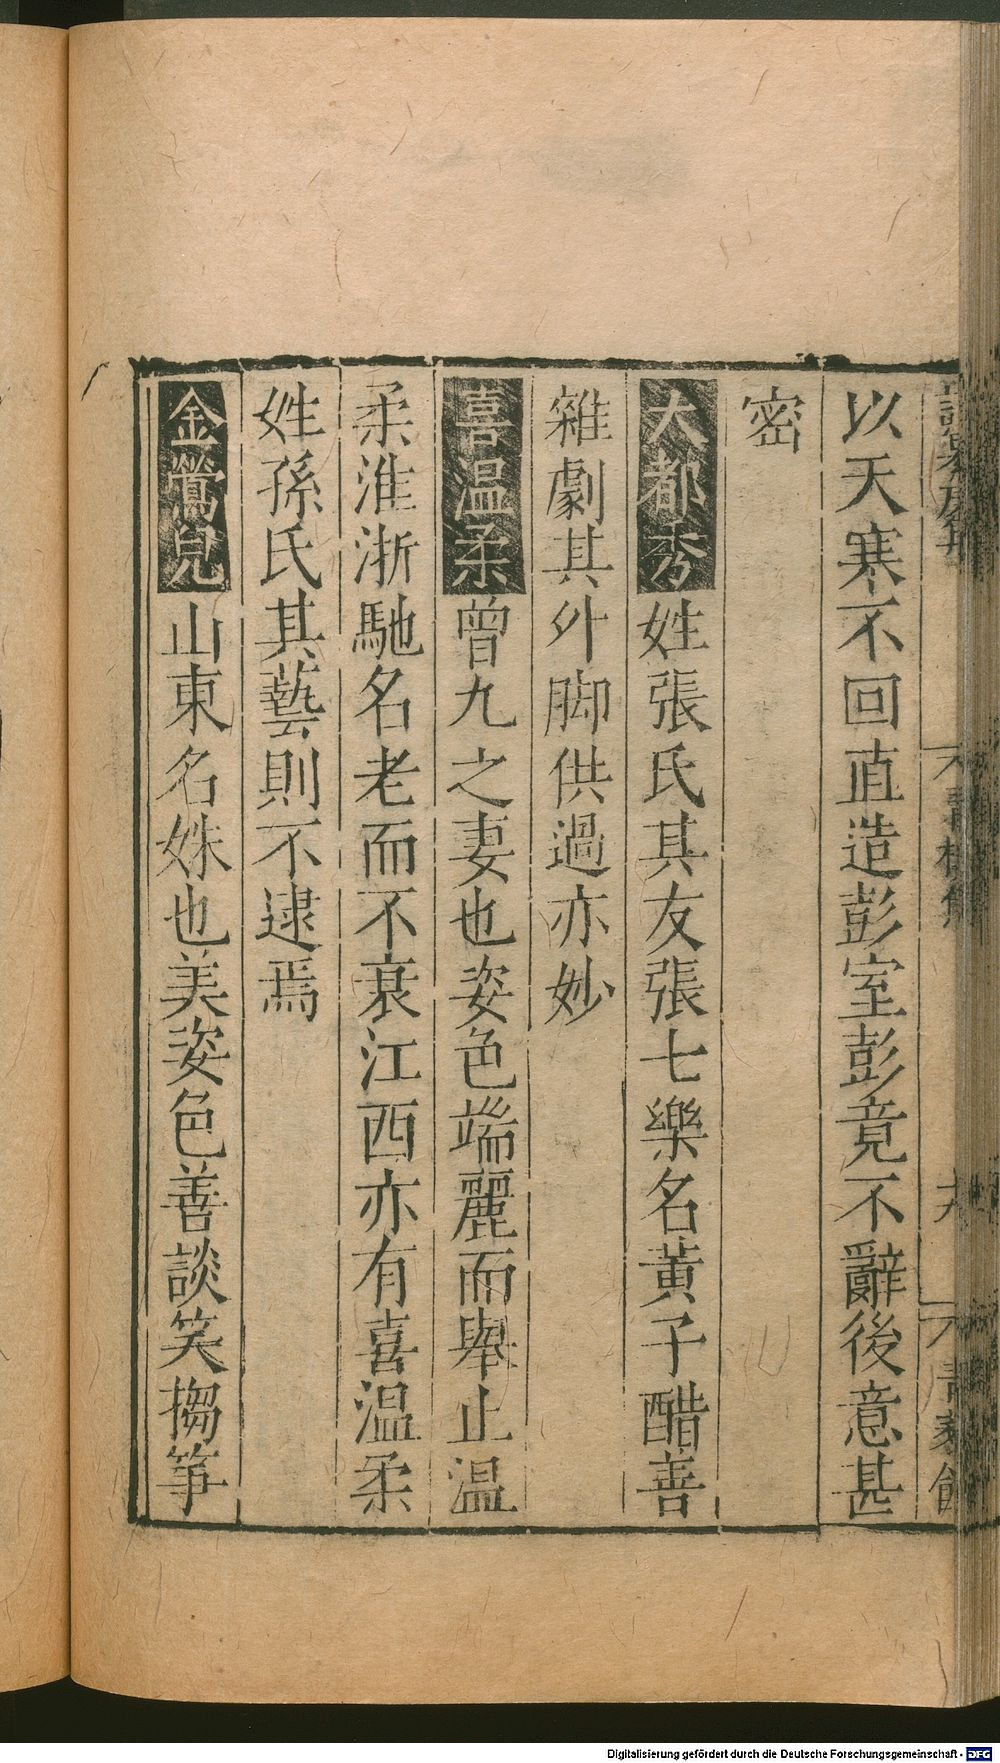 以天寒不回直造彭室彭竟不辭後意甚
密
大都秀姓張氏其友張七樂名黃子醋善
雜劇其外脚供過亦妙
喜温柔曾九之妻也姿色端麗而舉止温
柔淮浙馳名老而不衰江西亦有喜温柔
姓孫氏其藝則不逮焉
金鶯兒山東名姝也美姿色善談笑搊筝
Digitalisierung gefördert durch die Deutsche Forschungsgemeinschaft - DFG